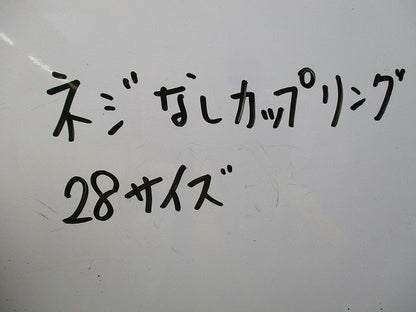 ネジなしカップリング
28サイズ